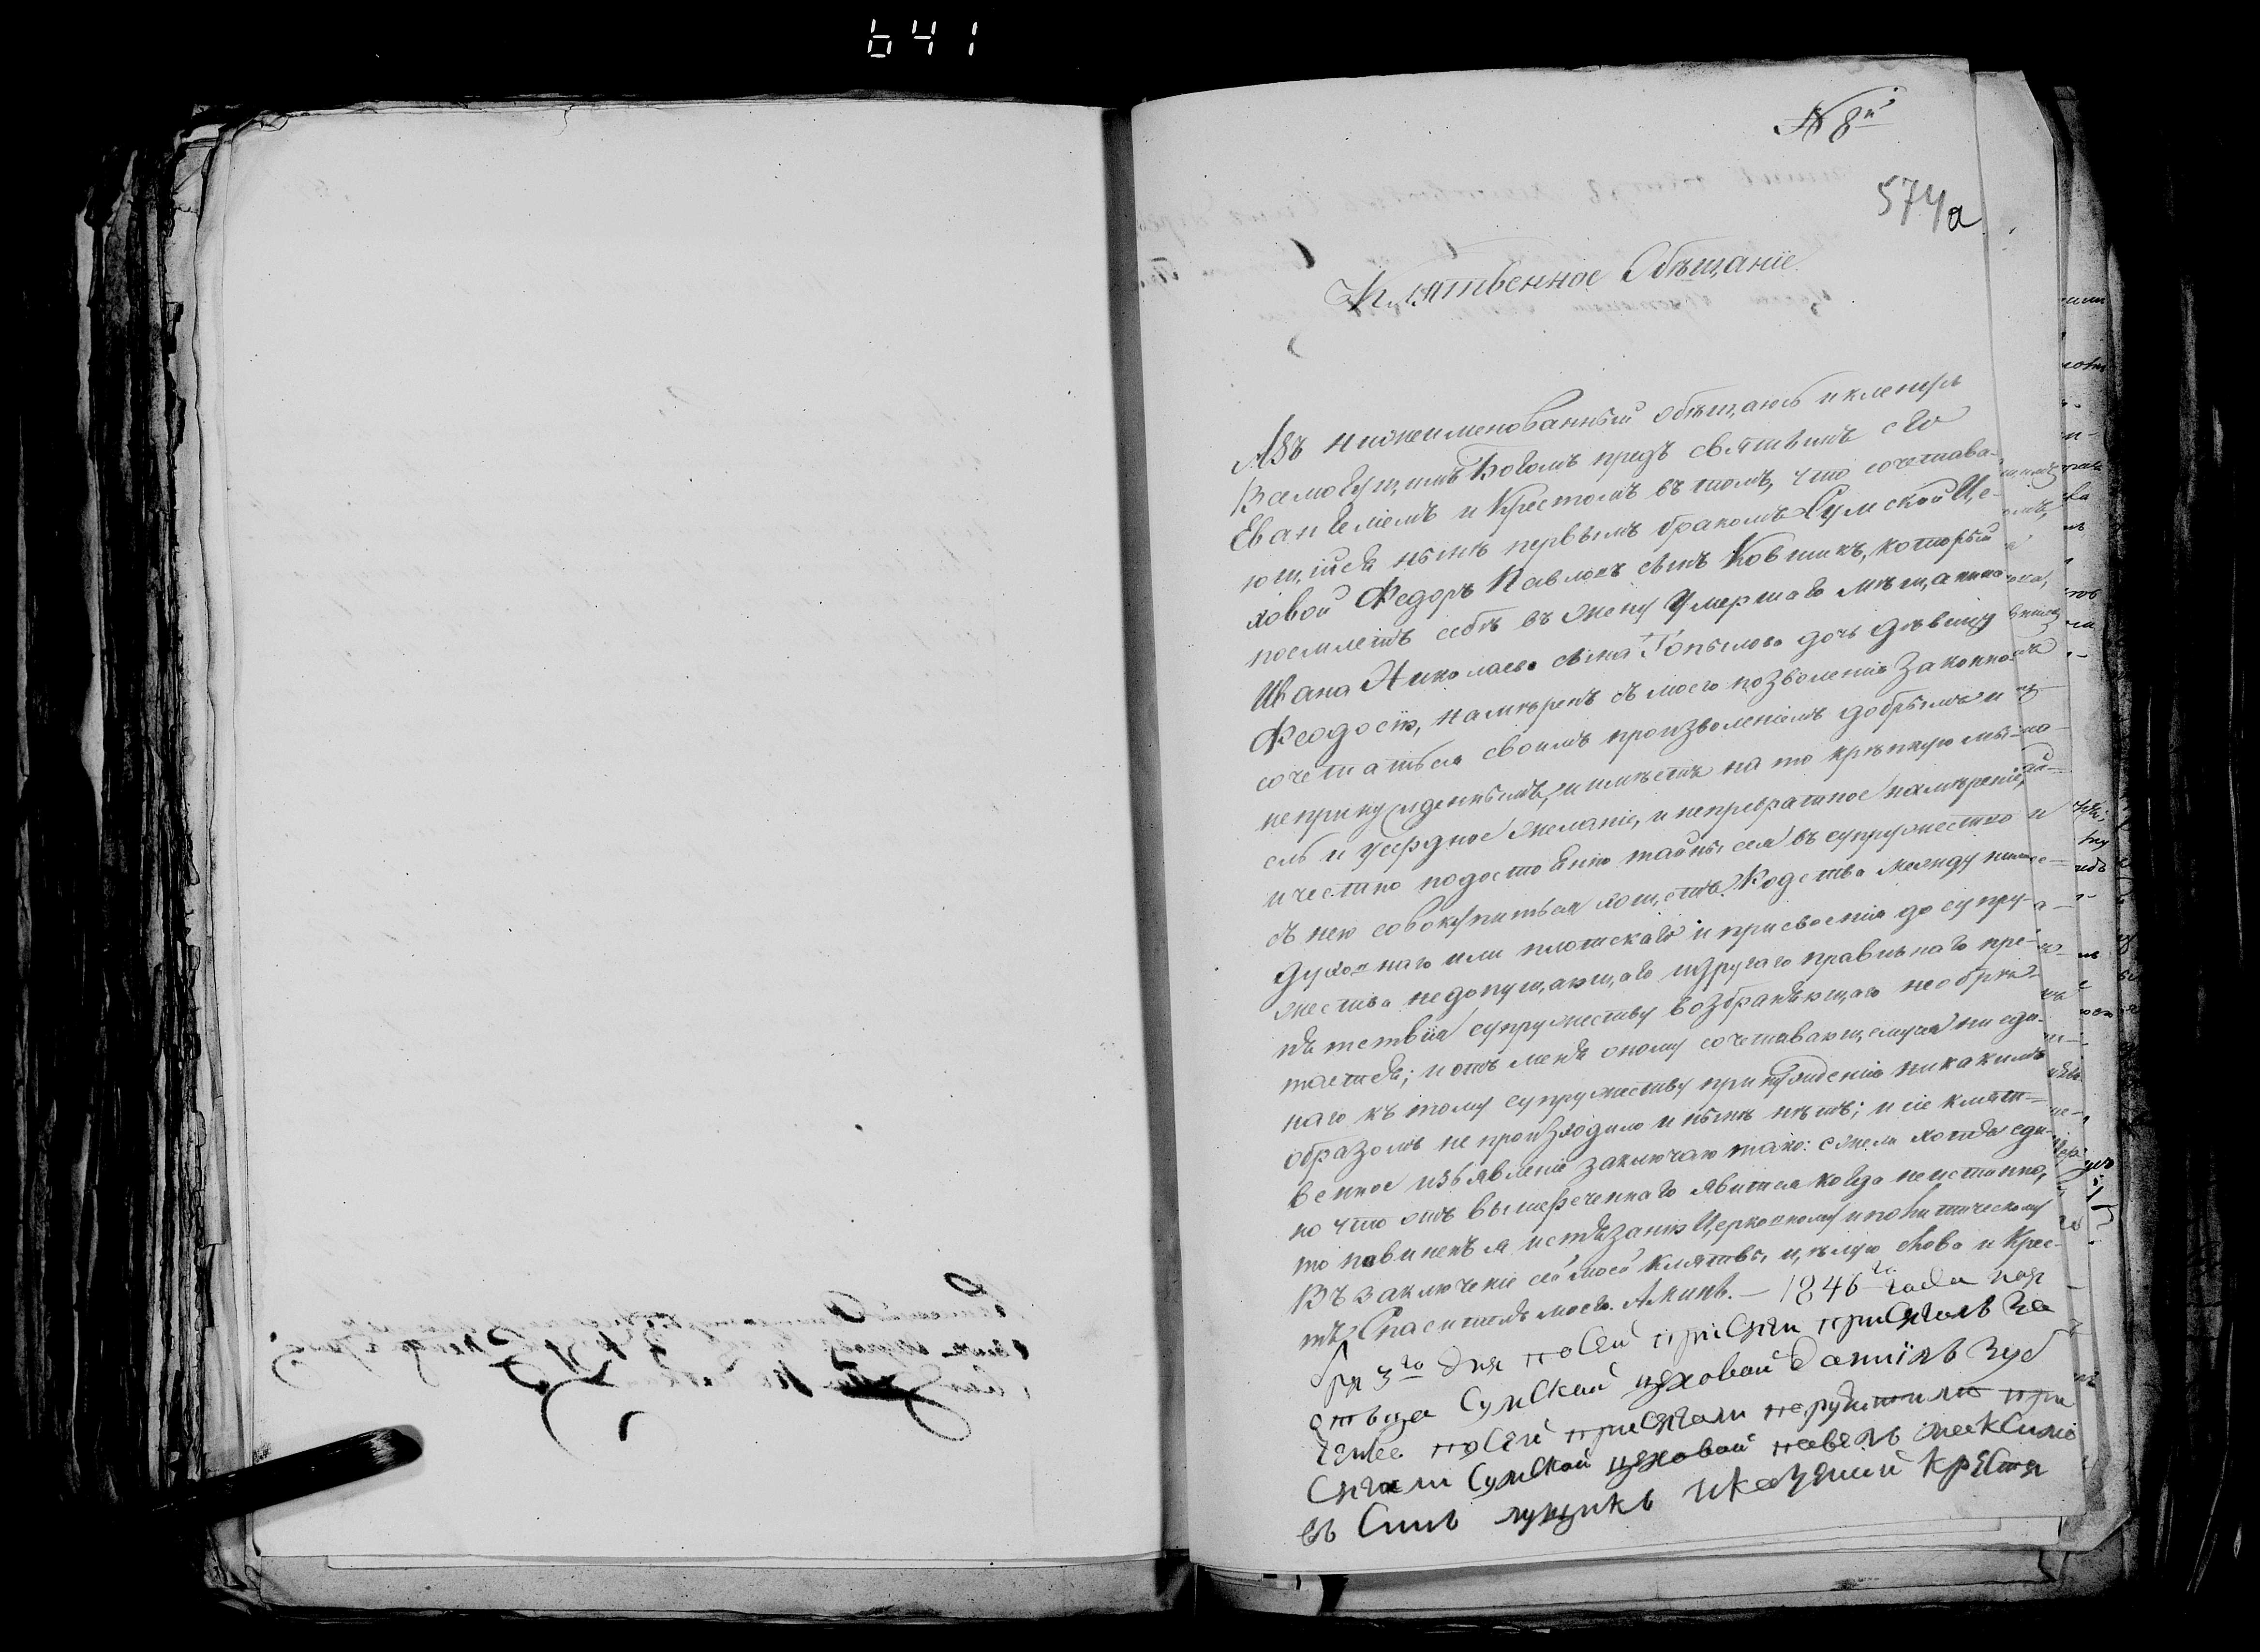 641
№ 8й
574а
Клятвенное Обѣщаніе.
Азъ нижеименованный обѣщаюсь и кленусь
Всемогущимъ Богомъ предъ святымъ его
Евангеліемъ и Крестомъ въ томъ, что сочетава-
ющійся нынѣ первымъ бракомъ Сумской Це-
ховой Федоръ Павловъ сынъ Ковшикъ, который
поемлетъ себѣ въ жену умершаго мѣщанина
Ивана Николаева сына Копылова дочь дѣвицу
Феодосію, намѣренъ съ моего позволенія законно
сочетаться своимъ произволеніемъ добрымъ и
непринужденнымъ, и имѣетъ на то крѣпкую мы-
сль и усердное желаніе, и непревратное намѣреніе,
и честно по достоянію тайны сея въ супружество
съ нею совокупиться хощетъ. Родства между ними
духовнаго или плотскаго и присвоенія до супру-
жества недопущающаго и другаго правильнаго пре-
пятствія супружеству возбраняющаго необрѣ-
тается; и отъ меня оному сочетавающемуся ни еди-
наго къ тому супружеству принужденія никакимъ
образомъ не произходило и нынѣ нѣтъ; и сіе клят-
венное изъявленіе заключаю тако: ежели хотя еди-
но что отъ вышереченнаго явится когда неистинно,
то повиненъ я истязанію Церковному и политическому
Въ заключеніе сей моей клятвы цѣлую слова и Крес-
тъ Спасителя моего. Аминь. — 1846го года ная
бря 3го дня по сей присяги присягалъ за
отьца Сумской цеховой Даніилъ Зуб
по сей присягали
сягали Сумской цеховой павелъ максимо
въ Синъ лущикъ и казеный крестя